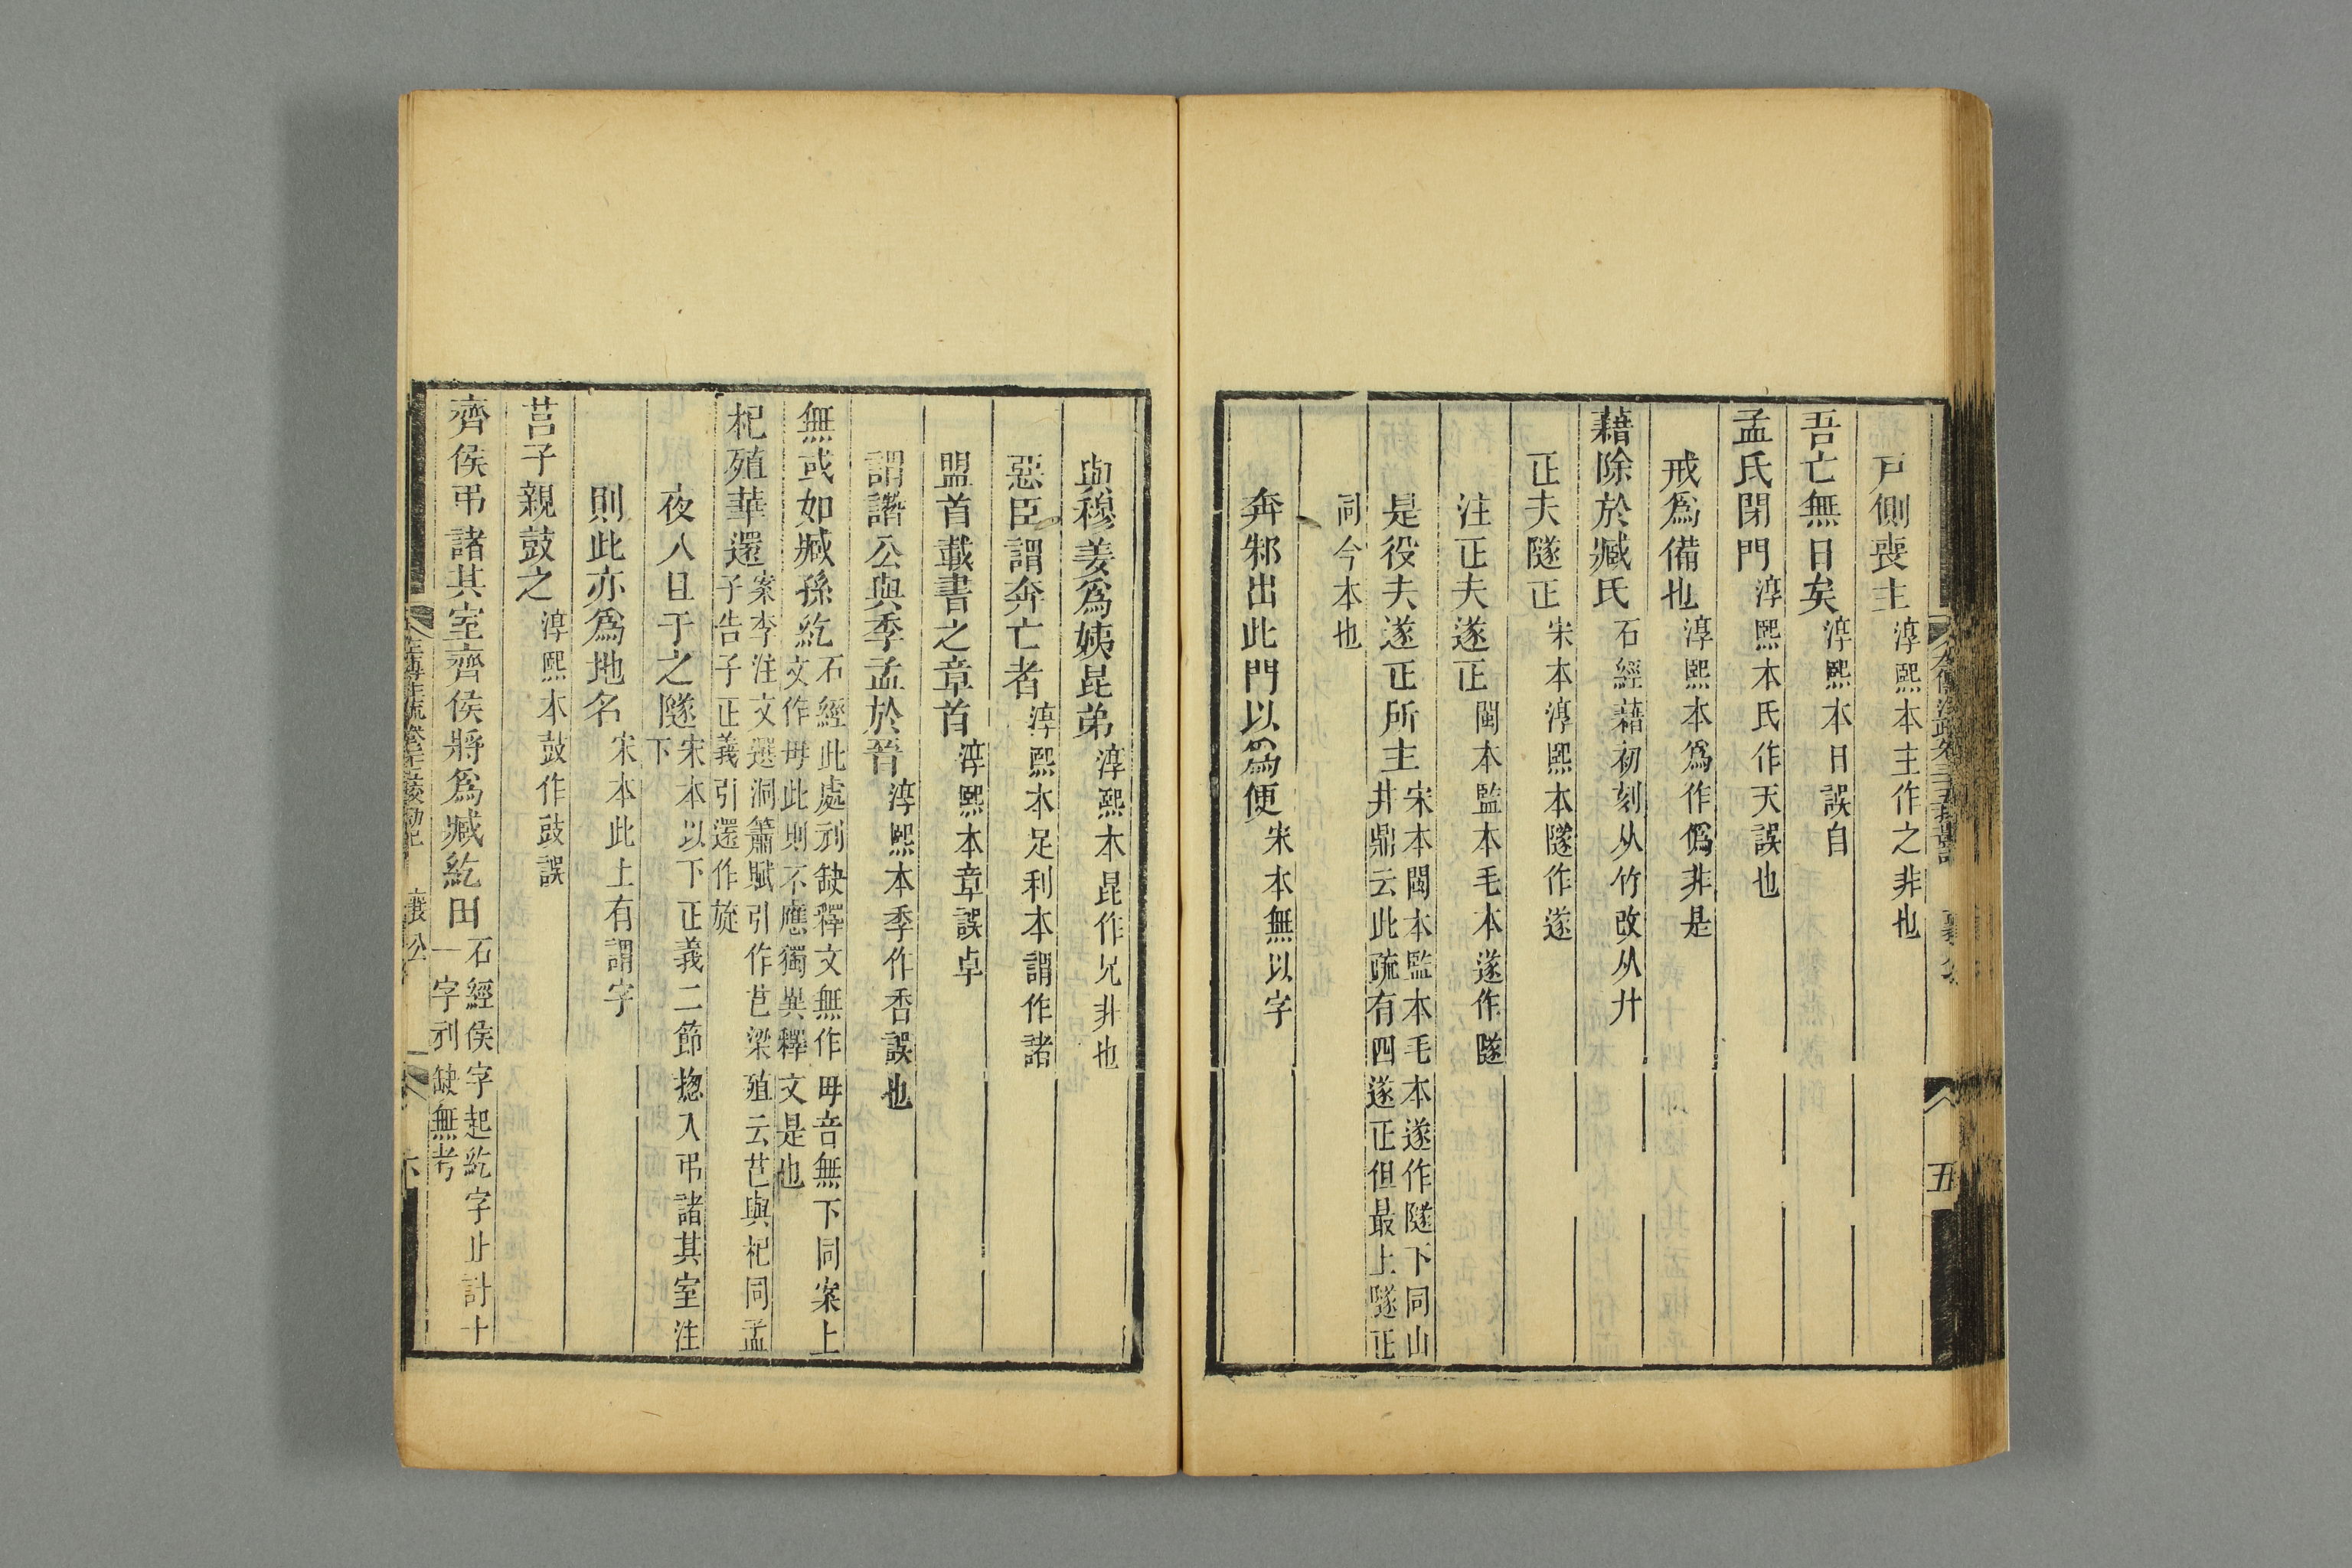 戸側喪主淳熙本主作之非也
吾亡無日矣淳熙本日誤自
孟氏閉門淳熙本氏作天誤也
戒爲備也淳熙本爲作僞非是
藉除於臧氏石經藉初刻从竹改从廾
正夫隧正宋本淳熙本隧作遂
注正夫遂正閩本監本毛本遂作隧
是役夫遂正所主宋本閩本監本毛本遂作隧下同山
井鼎云此疏有四遂正但最上隧正
同今本也
奔邾出此門以爲便宋本無以字
與穆姜爲姨昆弟淳熙本昆作兄非也
惡臣謂奔亡者淳熙本足利本謂作諸
盟首載書之章首淳熙本章誤卓
謂譖公與季孟於晉淳熙本季作香誤也
無或如臧孫紇石經此處刓缺釋文無作毋音無下同案上
文作毋此則不應獨異釋文是也
杞殖華還案李注文選洞簫賦引作芑梁殖云芑與杞同孟
子告子正義引還作旋
夜入且于之隧宋本以下正義二節揔入弔諸其室注
下
則此亦爲地名宋本此上有謂字
莒子親鼓之淳熙本鼓作皷誤
齊侯弔諸其室齊侯將爲臧紇田石經侯字起紇字止計十
一字刓缺無考
五